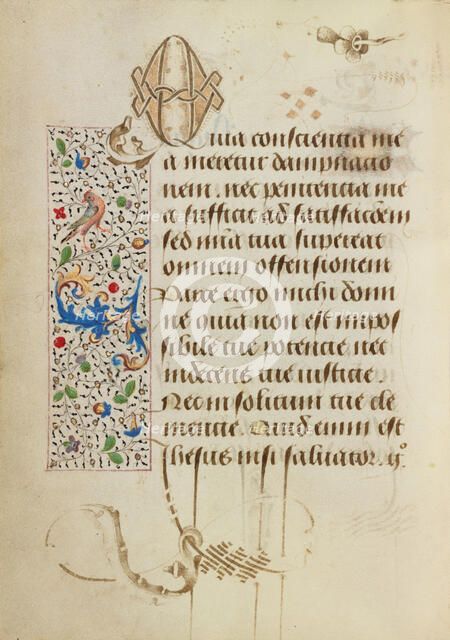 Quia conscientia me
a meretur dampnatio
nem. nec penitencia me
a sufficit ad satisfactionem
sed mia tua superat
omnem offensionem
Parce ergo michi domi
ne quia non est impos
sibile tue potencie. nec
indecens tue iusticie.
Nec insolitum tue cle
mencie. Quid enim est
Ihesus nisi saluator. go
heritage
Heritage